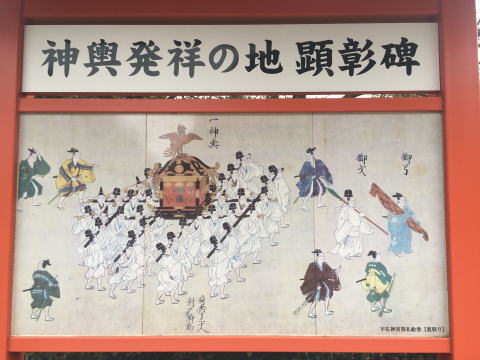 神輿発祥の地 顕彰碑
一神輿
御弓
御戈
宇佐神宮祭礼絵巻【夏祭り】